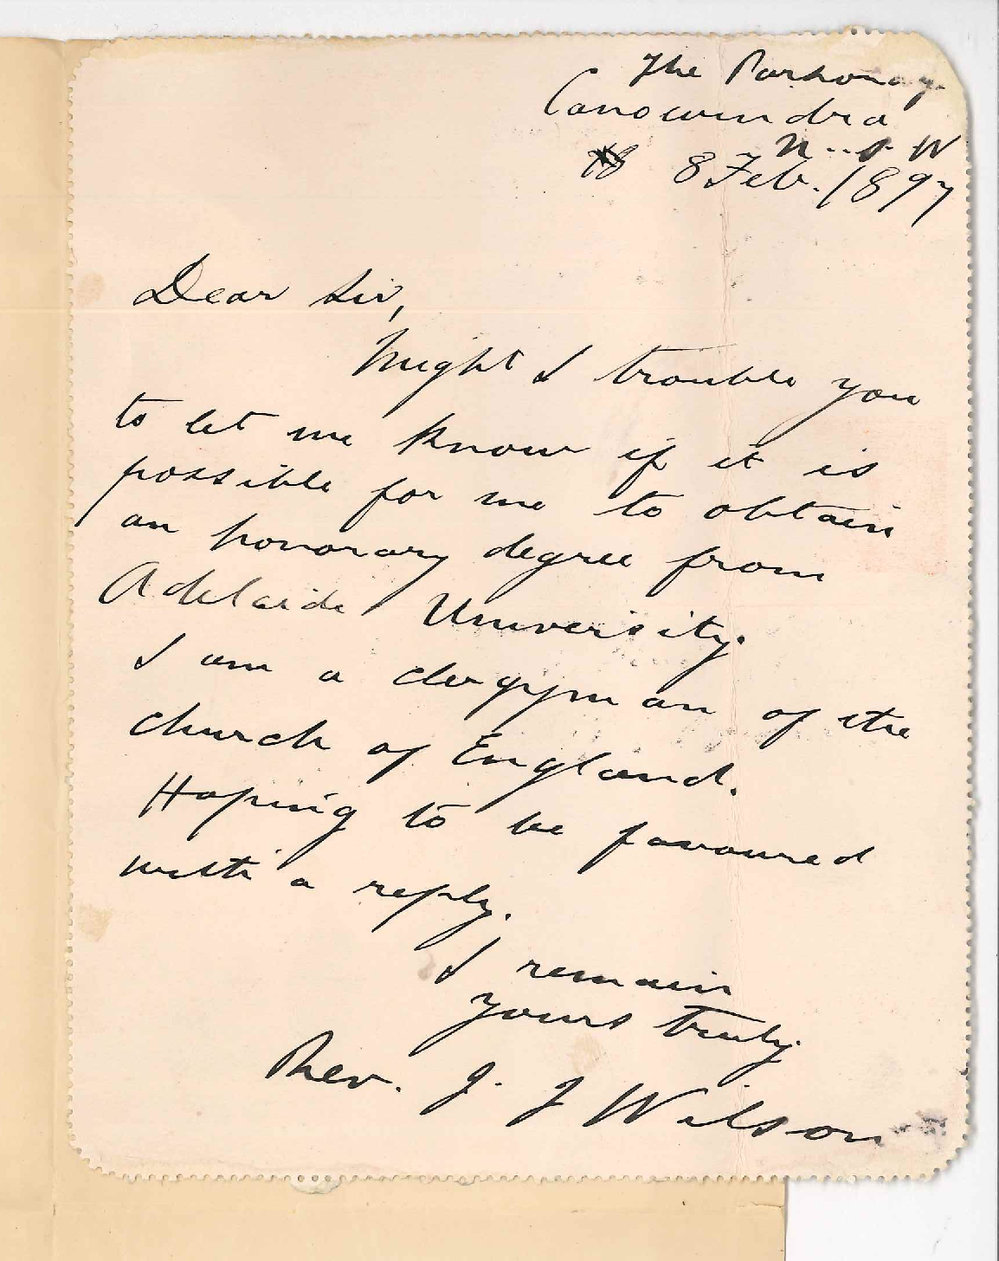 The Parsonage
Canowindra
N. S. W
8 Feb. 1897
Dear Sir,
Might I trouble you
to let me know if it is
possible for me to obtain
an honorary degree from
Adelaide University.
I am a clergyman of the
church of England.
Hoping to be favoured
with a reply.
I remain
yours truly
Rev. J. J Wilson